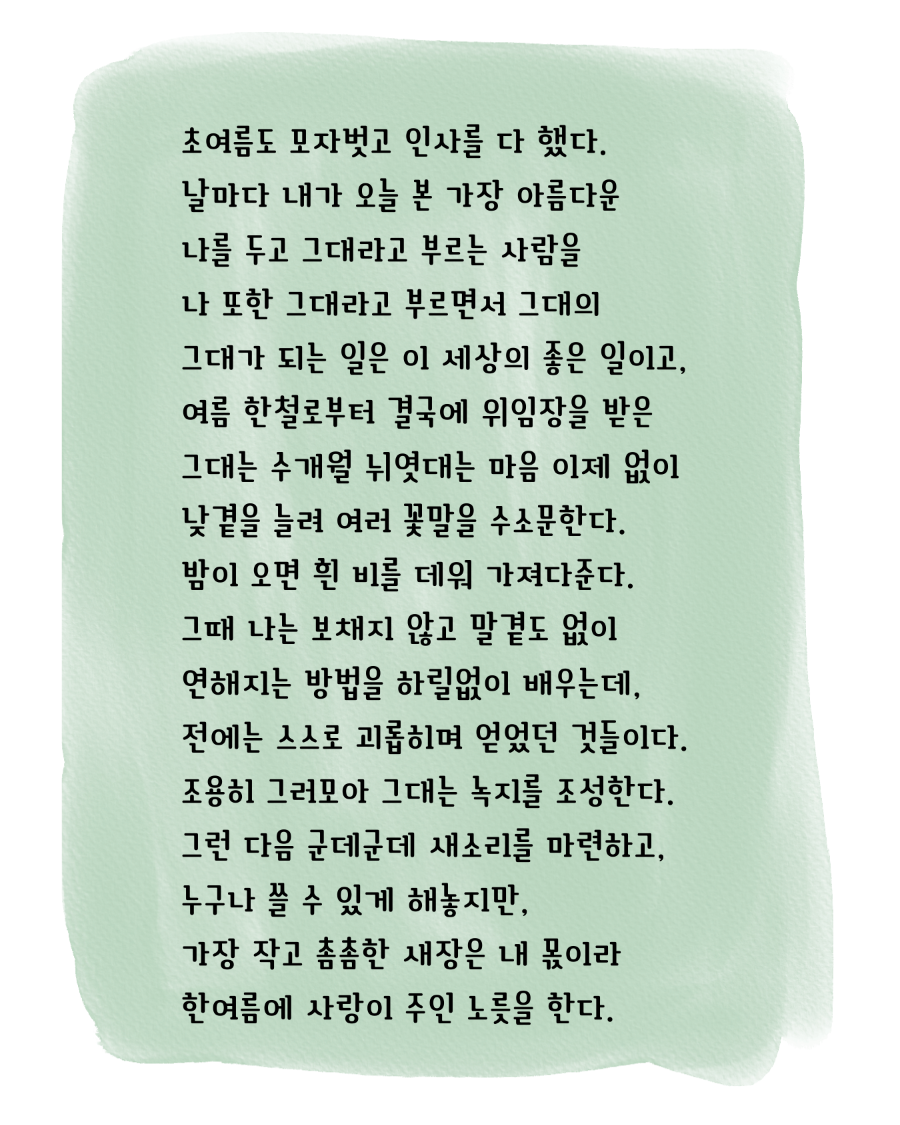 초여름도 모자벗고 인사를 다 했다.
날마다 내가 오늘 본 가장 아름다운
나를 두고 그대라고 부르는 사람을
나 또한 그대라고 부르면서 그대의
그대가 되는 일은 이 세상의 좋은 일이고,
여름 한철로부터 결국에 위임장을 받은
그대는 수개월 뉘엿대는 마음 이제 없이
낮곁을 늘려 여러 꽃말을 수소문한다.
밤이 오면 흰 비를 데워 가져다준다.
그때 나는 보채지 않고 말곁도 없이
연해지는 방법을 하릴없이 배우는데,
전에는 스스로 괴롭히며 얻었던 것들이다.
조용히 그러모아 그대는 녹지를 조성한다.
그런 다음 군데군데 새소리를 마련하고,
누구나 쓸 수 있게 해놓지만,
가장 작고 촘촘한 새장은 내 몫이라
한여름에 사랑이 주인 노릇을 한다.